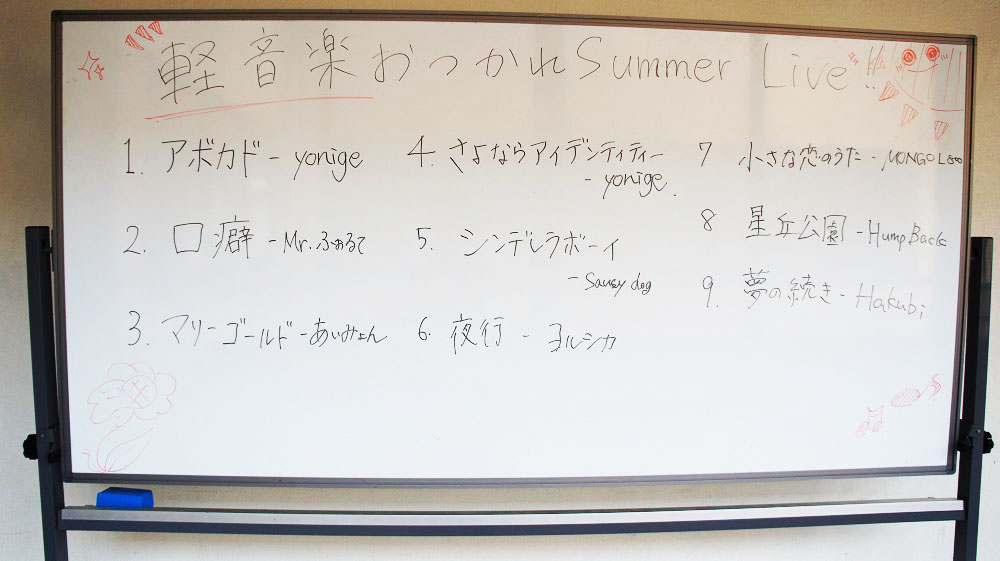 軽音楽おつかれSummer Live!!
1. アボカド - yonige
2. 口癖 - Mr.ふぉるて
3. マリーゴールド - あいみょん
4. さよならアイデンティティー
- yonige.
5. シンデレラボーイ
- Saucy dog
6. 夜行 - ヨルシカ
7 小さな恋のうた - MONGOL800
8 星丘公園 - Hump Back
9. 夢の続き - Hakubi